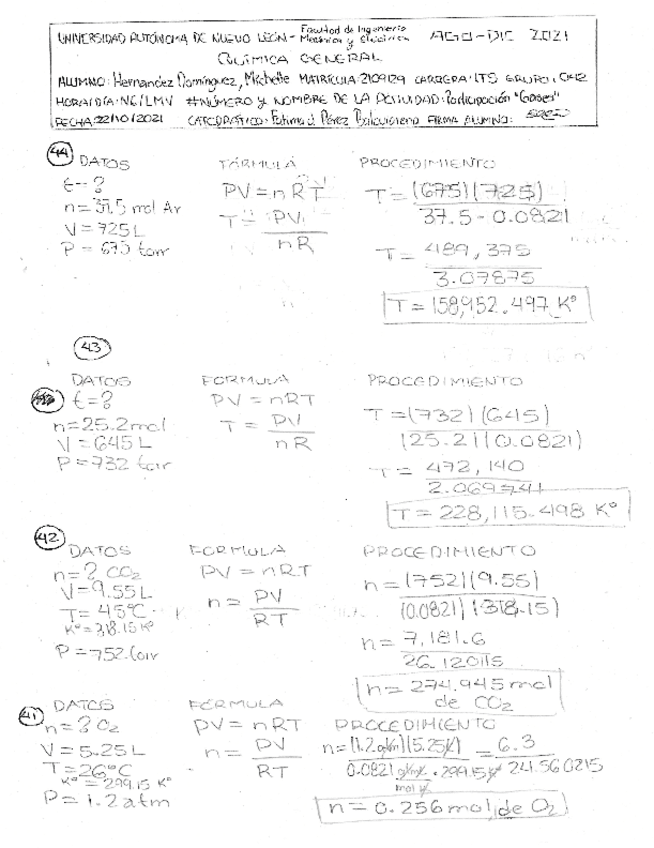 UNIVERSIDAD AUTÓNOMA DE NUEVO LEÓN - Facultad de Ingeniería Mecánica y Eléctrica AGO-DIC 2021
QUÍMICA GENERAL
ALUMNO: Hernandez Domínguez, Michelle MATRÍCULA: 2109129 CARRERA: ITS GRUPO:
HORA/DÍA: N6/LMV #NÚMERO y NOMBRE DE LA ACTIVIDAD: Participación "Gases"
FECHA: 22/10/2021 CATEDRÁTICO: Fatima J. Pérez FIRMA ALUMNO:
44 DATOS FÓRMULA PROCEDIMIENTO
t = ? PV = nRT T = (675)(725)
n = 37.5 mol Ar T = PV 37.5 - 0.0821
V = 725 L nR T = 489,375
P = 675 torr 3.07875
T = 158,952.497 K°
43
DATOS FORMULA PROCEDIMIENTO
t = ? PV = nRT T = (732)(645)
n = 25.2 mol T = PV (25.2)(0.0821)
V = 645 L nR T = 472,140
P = 732 torr
T = 228,115.498 K°
42
DATOS FORMULA PROCEDIMIENTO
n = ? CO2 PV = nRT n = (752)(9.55)
V = 9.55 L n = PV (0.0821)(318.15)
T = 45°C RT
K° = 318.15 K° n = 7,181.6
P = 752 torr 26.120115
n = 274.945 mol
de CO2
41 DATOS FORMULA PROCEDIMIENTO
n = ? O2 PV = nRT n = (1.2 )(5.25 ) = 6.3
V = 5.25 L n = PV 0.0821 . 299.15 K° 241.560215
T = 26°C RT mol K
K° = 299.15 K°
P = 1.2 atm n = 0.256 mol de O2